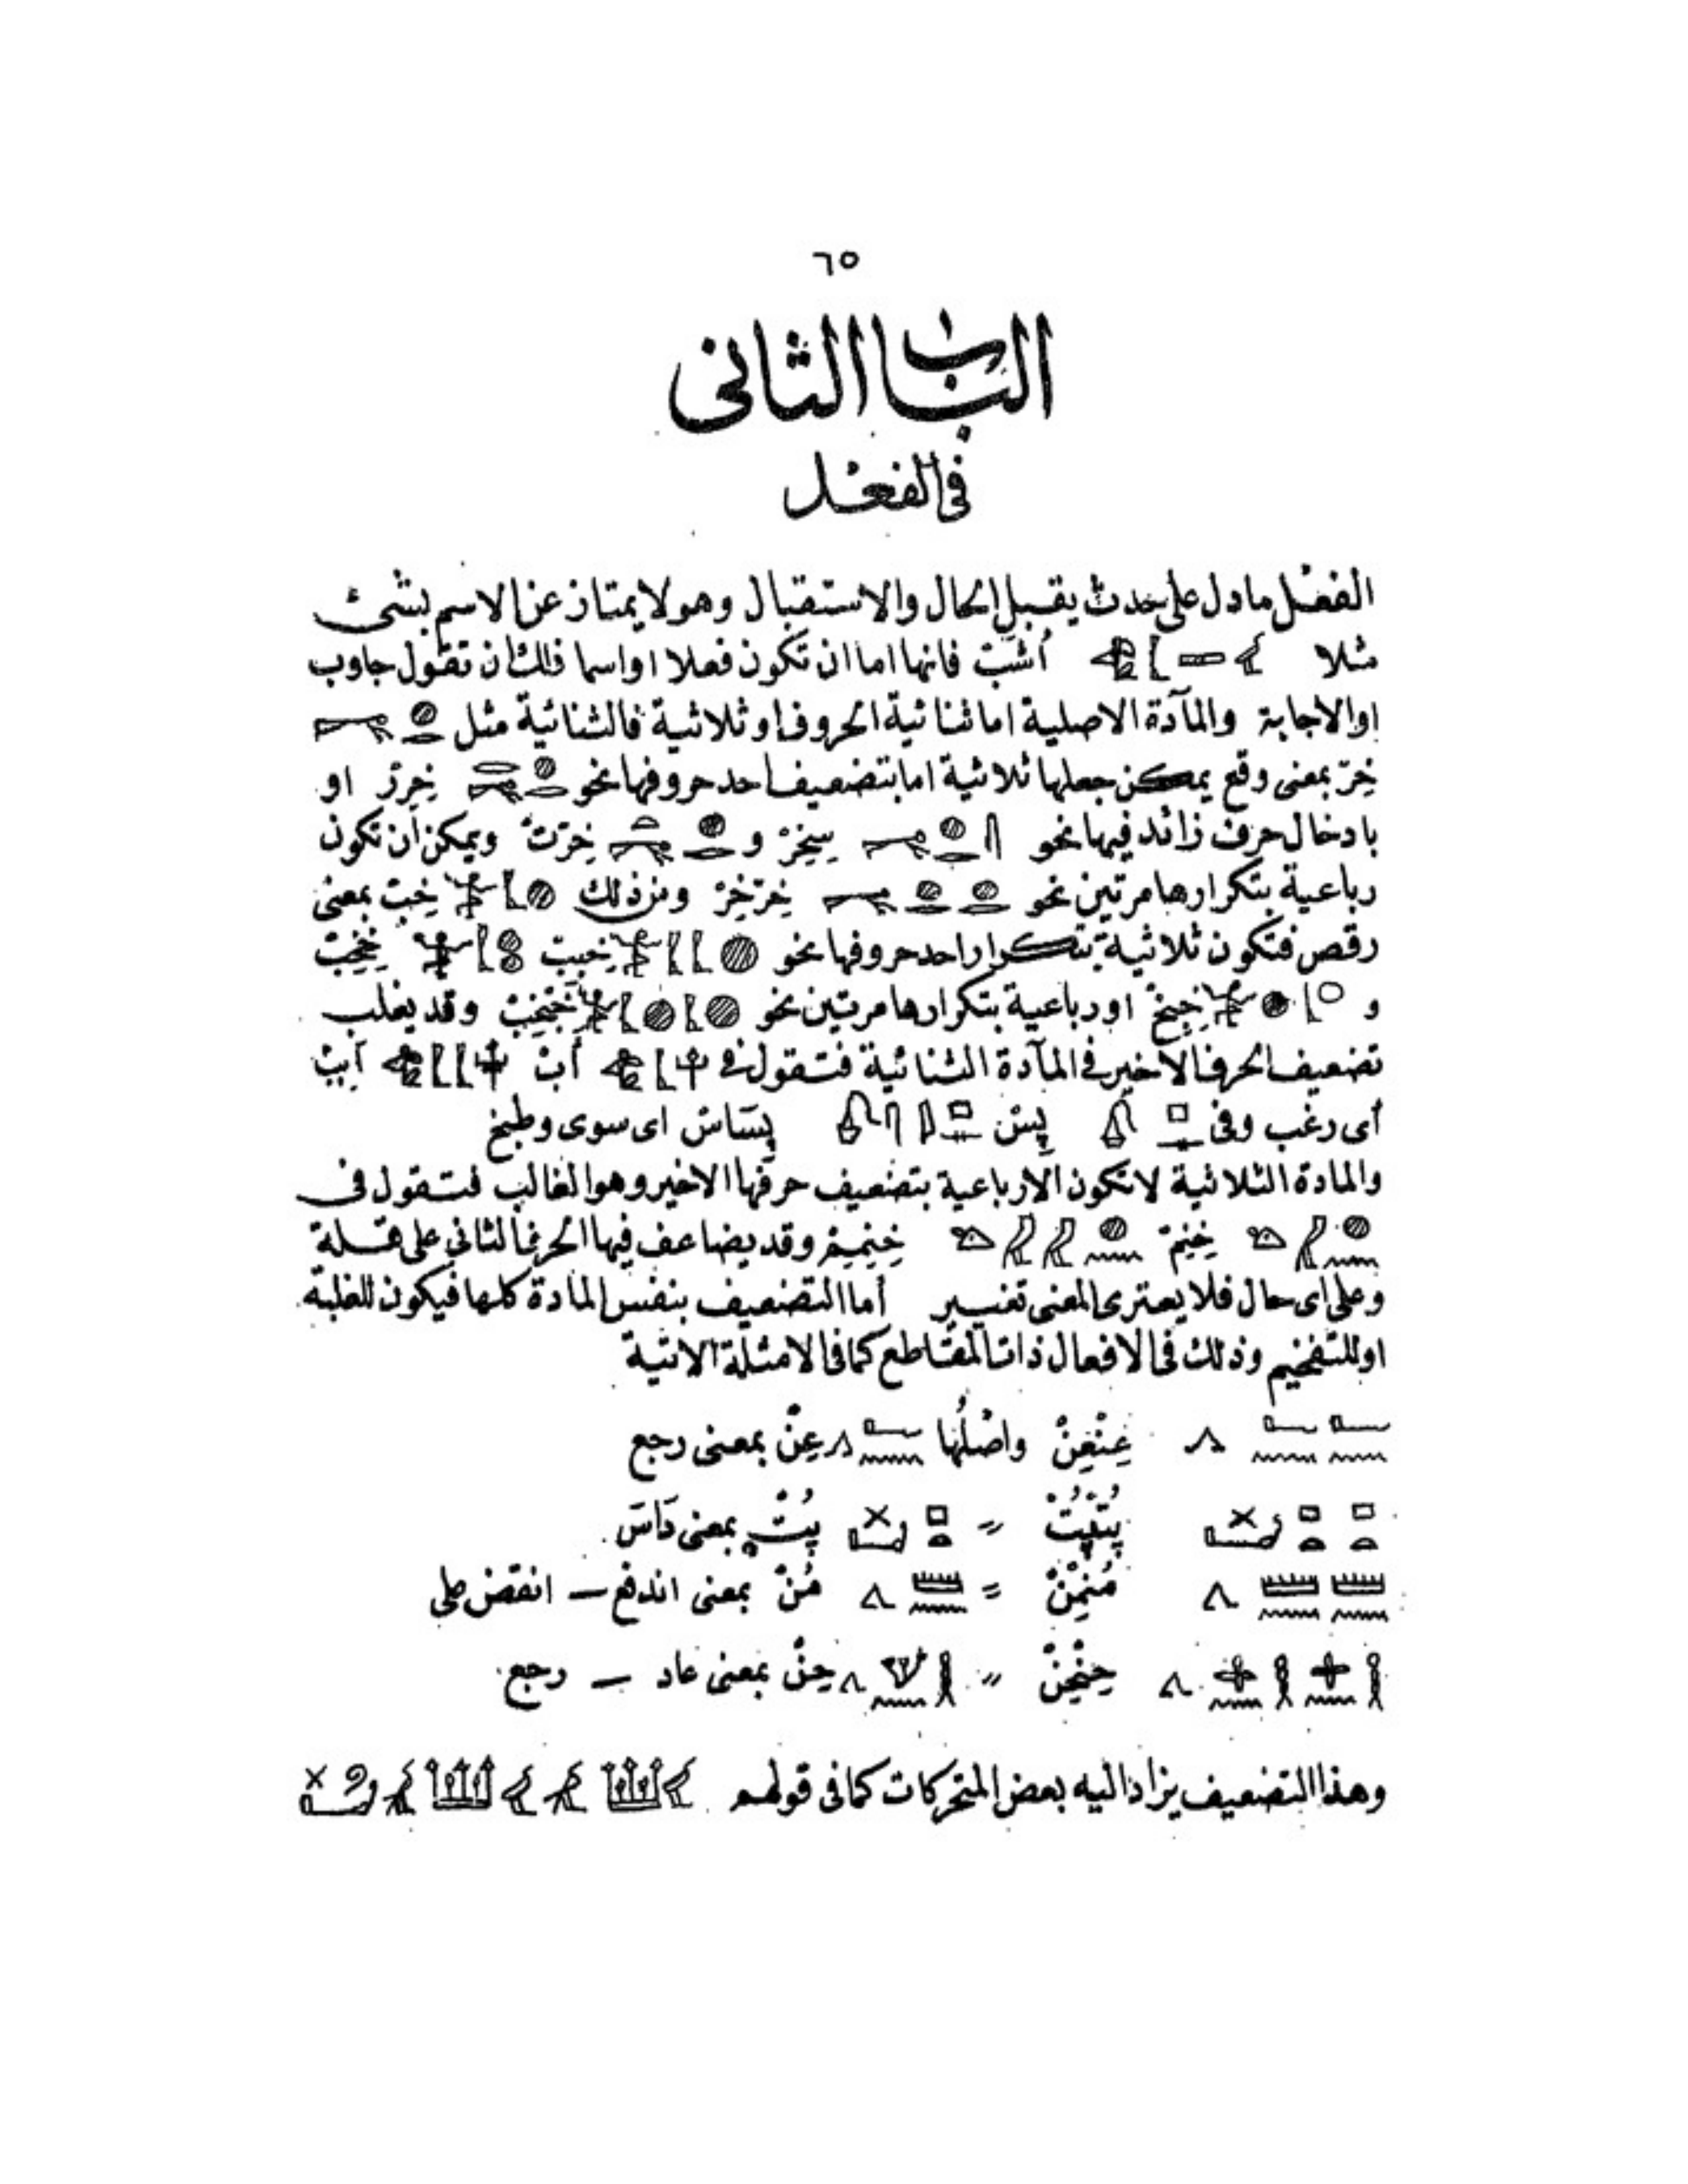 ٦٥
الباب الثانى
فى الفعل
الفعل ما دل على حدث يقبل الحال والاستقبال وهو لا يمتاز عن الاسم بشئ
مثلا أُشَبْ فانها اما ان تكون فعلا او اسما فلك ان تقول جاوب
او الاجابة والمآدة الاصلية اما ثنائية الحروف او ثلاثية فالثنائية مثل
خِرْ بمعنى وقع يمكن جعلها ثلاثية اما بتضعيف احد حروفها نحو خِرِرْ او
بادخال حرف زائد فيها نحو سِخِرْ و خِرْتْ ويمكن أن تكون
رباعية بتكرارها مرتين نحو خِرْخِرْ ومن ذلك خِبْ بمعنى
رقص فتكون ثلاثية بتكرار احد حروفها نحو خِبِبْ خِخِبْ
و خِبِخْ او رباعية بتكرارها مرتين نحو خِبْخِبْ وقد يغلب
تضعيف الحرف الأخير فى المآدة الثنائية فتقول فى أَبْ أَبِبْ
أى رغب وفى پِسْ پِسَاسْ اى سوى وطبخ
والمادة الثلاثية لا تكون الا رباعية بتضعيف حرفها الاخير وهو الغالب فتقول فى
خِنِمْ خِنِمِمْ وقد يضاعف فيها الحرف الثانى على قلة
وعلى اى حال فلا يعترى المعنى تغيير أما التضعيف بنفس المادة كلها فيكون للغلبة
او للتفخيم وذلك فى الافعال ذات المقاطع كما فى الامثلة الاتية
عِنْعِنْ واصْلُها عِنْ بمعنى رجع
پُتْپُتْ " پُتْ بمعنى دَاسَ
مُنْمِنْ = مُنْ بمعنى اندفع — انقض على
حِنْحِنْ " حِنْ بمعنى عاد — رجع
وهذا التضعيف يزاد اليه بعض المتحركات كما فى قولهم